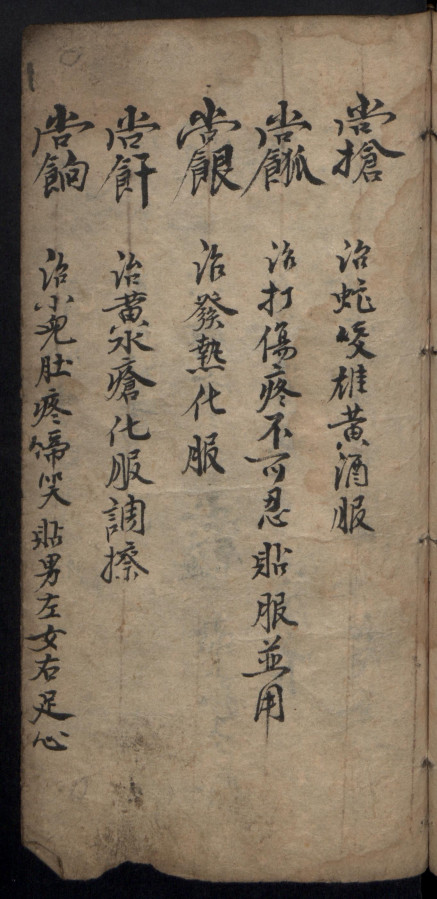 尚搶 治蛇咬雄黃酒服
尚 治打傷疼不可忍貼服並用
尚 治發熱化服
尚 治黃水瘡化服調搽
尚餉 治小兒肚疼啼哭貼男左女右足心